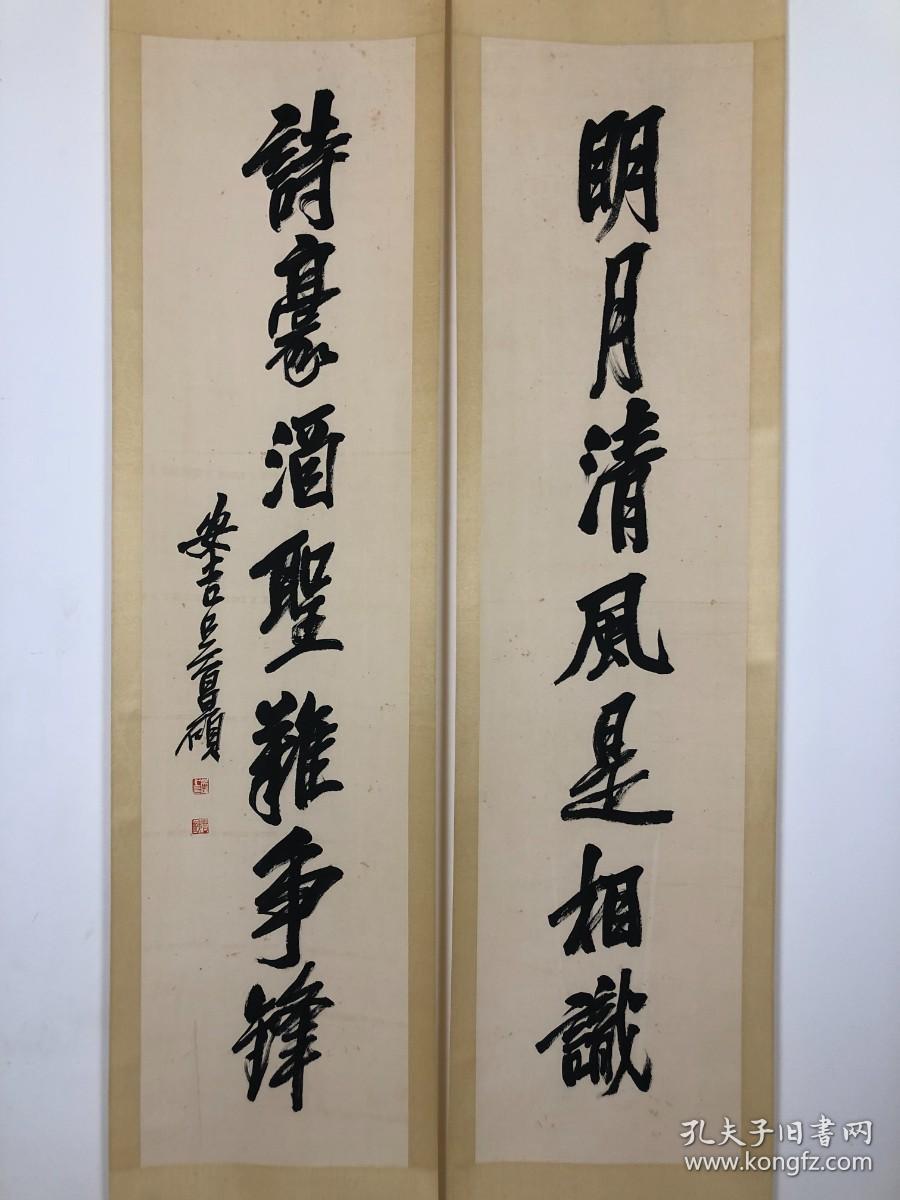 明月清風是相識
詩豪酒聖難爭鋒
安吉吳昌碩
孔夫子旧書网
www.kongfz.com